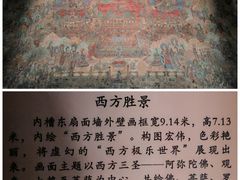 西方胜景
内槽东扇面墙外壁画框宽9.14米，高7.13
米，内绘“西方胜景”。构图宏伟，色彩艳
丽，将虚幻的“西方极乐世界”展现出
来。画面主题以西方三圣——阿弥陀佛、观